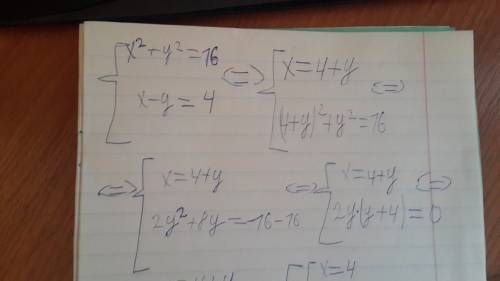 x²+y²=16
x-y=4
<=>
x=4+y
(4+y)²+y²=16
<=>
<=>
x=4+y
2y²+8y=16-16
<=>
x=4+y
2y·(y+4)=0
<=>
x=4